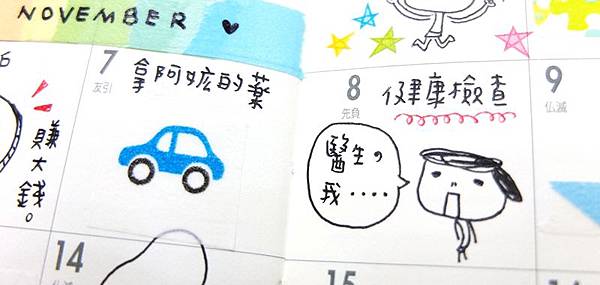 NOVEMBER
7
友引
拿阿的藥
賺
大
錢。
8
先負
健康檢查
醫生の
我····
9
仏滅
14
15